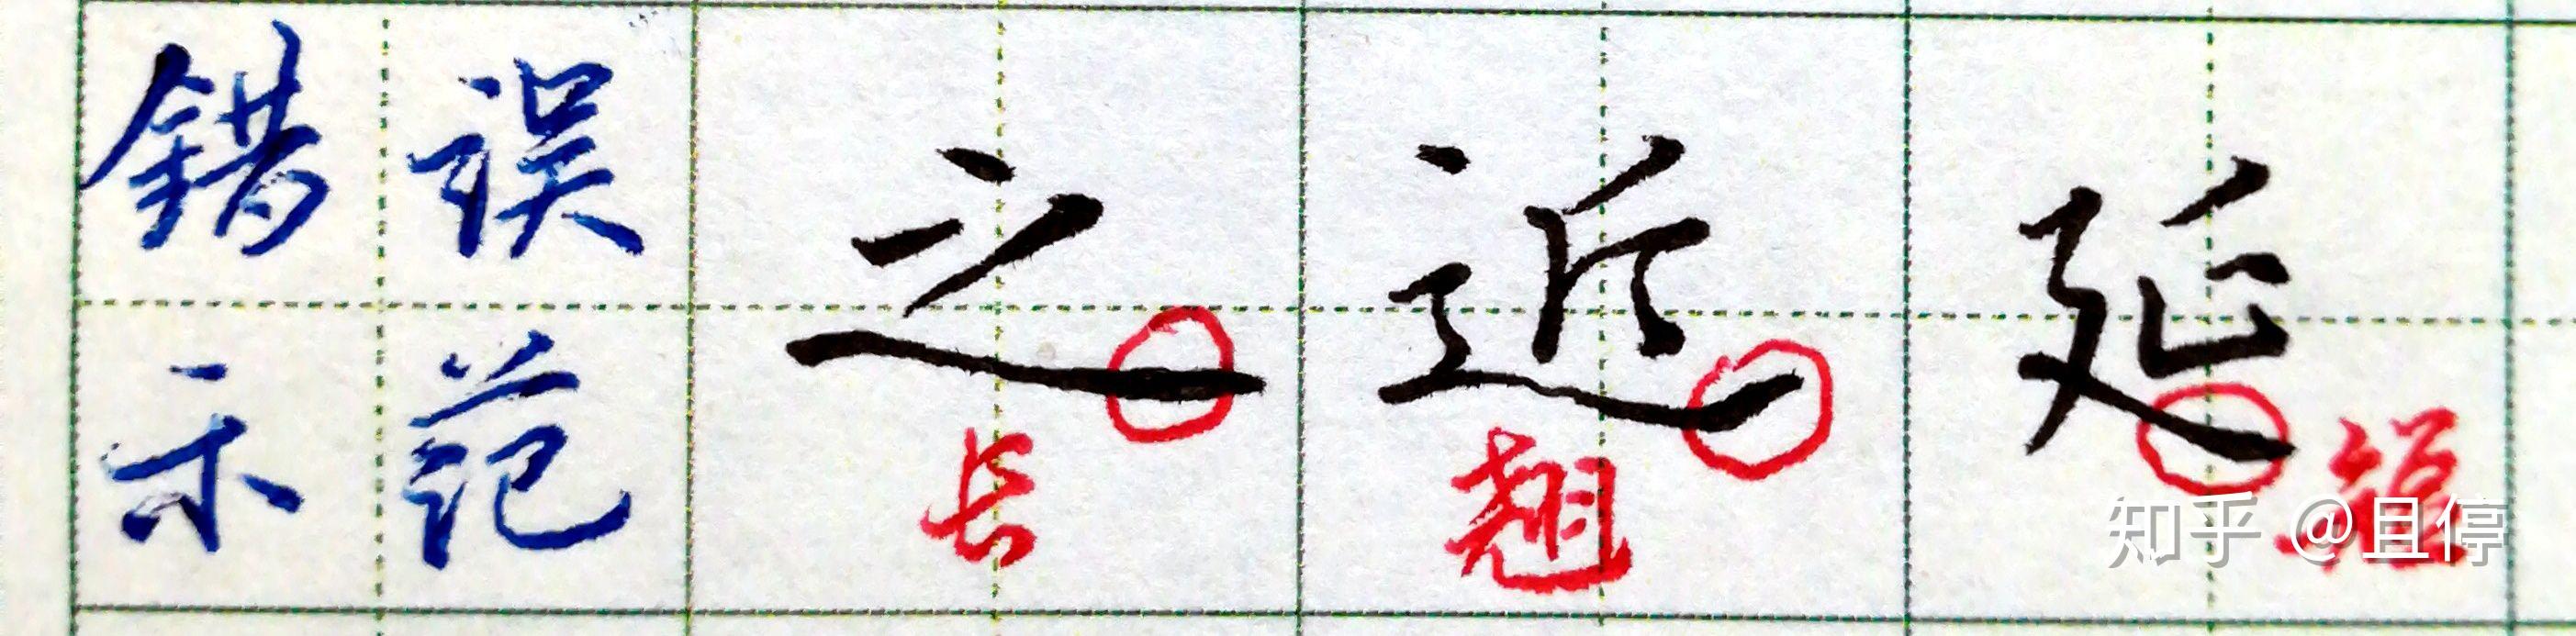 错误
示范
之 近 延
长 翘 短
知乎 @且停